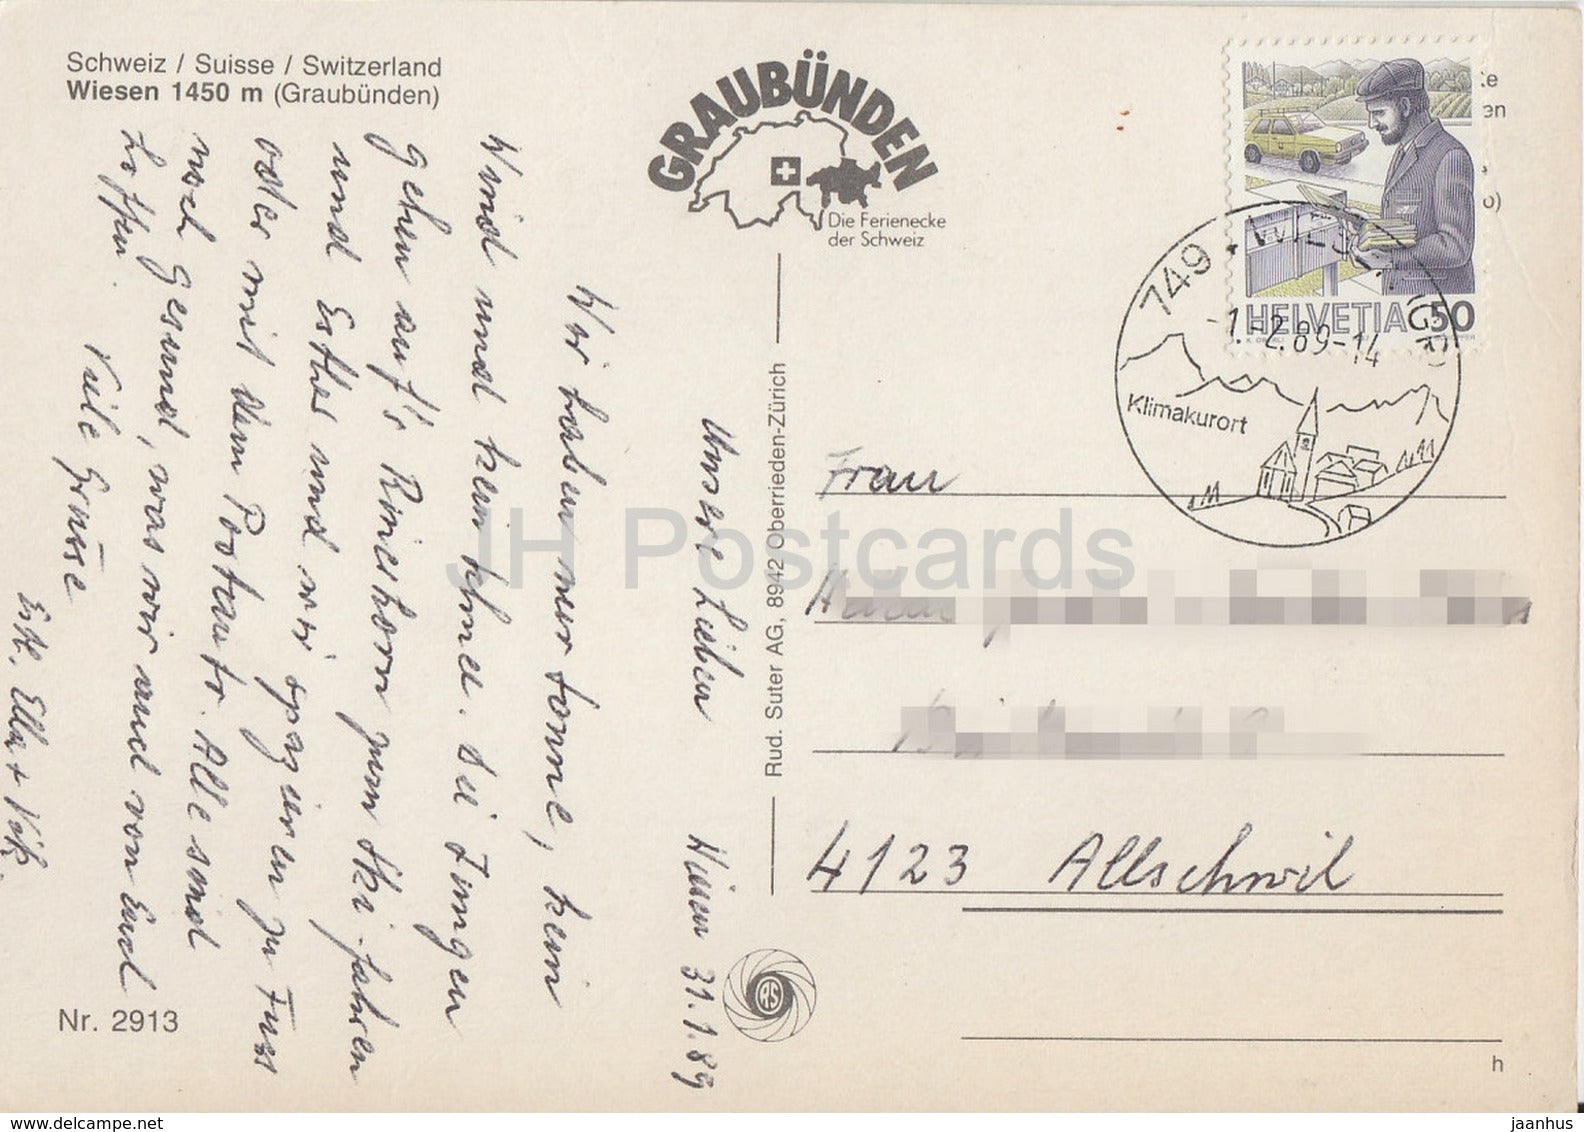 Schweiz / Suisse / Switzerland
Wiesen 1450 m (Graubünden)
GRAUBÜNDEN
Die Ferienecke
der Schweiz
HELVETIA 50
749
-1.-2.89-14
Klimakurort
Unsere Lieben
Wiesen 31.1.89
Wir haben nur Sonne, kein
Wind und kein Schnee. Die Jungen
gehen auf's Rinerhorn zum Ski-fahren
und Esther und wir spazieren zu Fuss
oder mit dem Postauto. Alle sind
noch Gesund, was wir auch von Euch
hoffen.
Viele Grüsse
Esth. Ella +
Rud. Suter AG, 8942 Oberrieden-Zürich
RS
Frau
4123 Allschwil
Nr. 2913
h
JH Postcards
www.delcampe.net
jaanhus